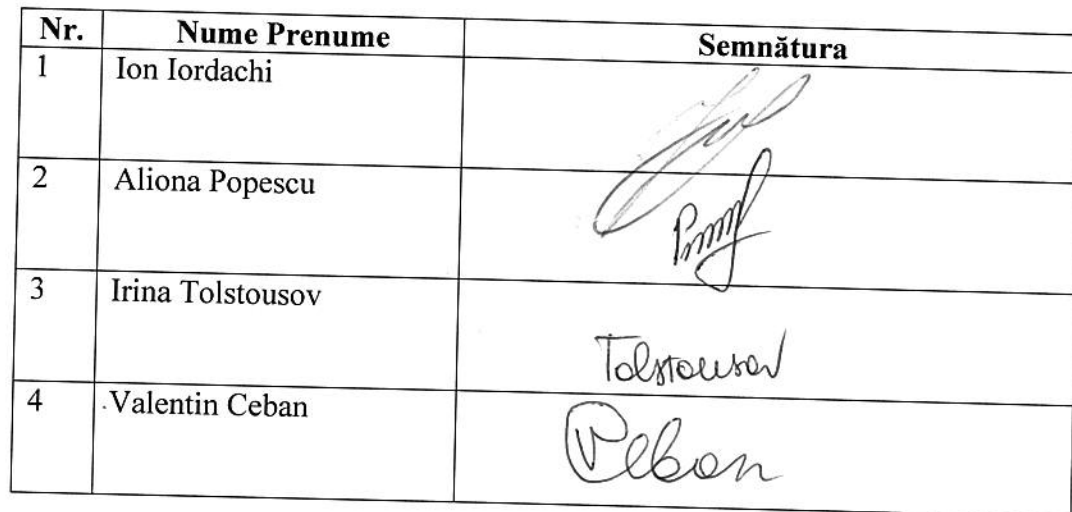 Nr. Nume Prenume Semnătura
1 Ion Iordachi
2 Aliona Popescu
3 Irina Tolstousov Tolstousov
4 Valentin Ceban VCeban